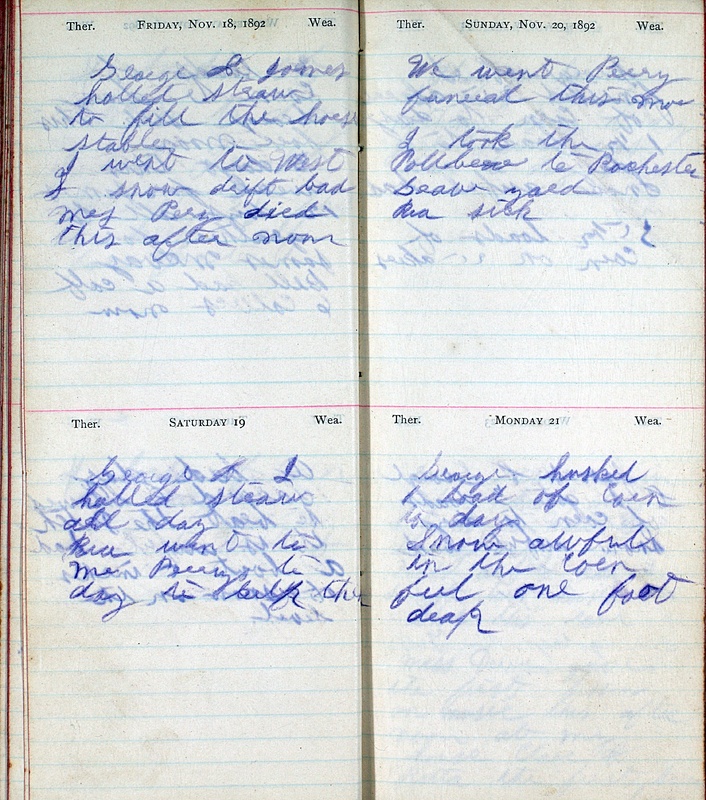 Ther. FRIDAY, NOV. 18, 1892 Wea.
George & Jones
halled straw
to fill the horse
stable
I went to West
J snow drift bad
mrs Pery died
this after noon
Ther. SATURDAY 19 Wea.
George & I
halled straw
all day
went to
Mrs Peery to
day to help the
Ther. SUNDAY, NOV. 20, 1892 Wea.
We went Peery
funeal this
I took the
to Rochester
yard
sick
Ther. MONDAY 21 Wea.
George husked
1 load of Corn
to day
Snow awful
in the Corn
feel one foot
deap